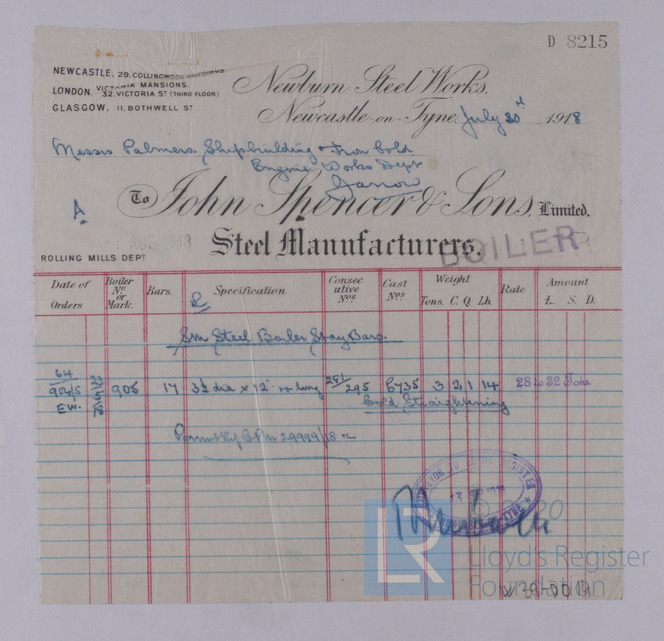 D 8215
NEWCASTLE, 29, COLLINGWOOD BUILDINGS
LONDON, VICTORIA MANSIONS, 32, VICTORIA ST (THIRD FLOOR)
GLASGOW, 11, BOTHWELL ST
Newburn Steel Works,
Newcastle-on-Tyne, July 30 1918
Messrs Palmers Shipbuilding & Iron Co Ld
Engine Works Dept
Jarrow
A
To John Spencer & Sons, Limited,
Steel Manufacturers.
BOILER
ROLLING MILLS DEPT
Date of Orders Boiler No or Mark. Bars. Specification Consecutive Nos Cast Nos Weight Tons. C. Q. Lb. Rate Amount £. S. D.
Sm Steel Boiler Stay Bars.
64
904/5 905 17 281/295 6735 3 2 1 14 28 to 32 Tons
EW. Cold Straightening
Lloyd's Register
Foundation